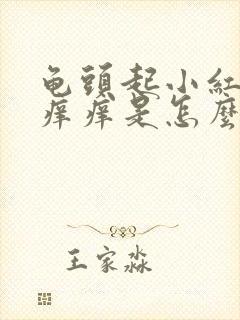 龟頭起小紅
痒痒是怎麼
王家淼